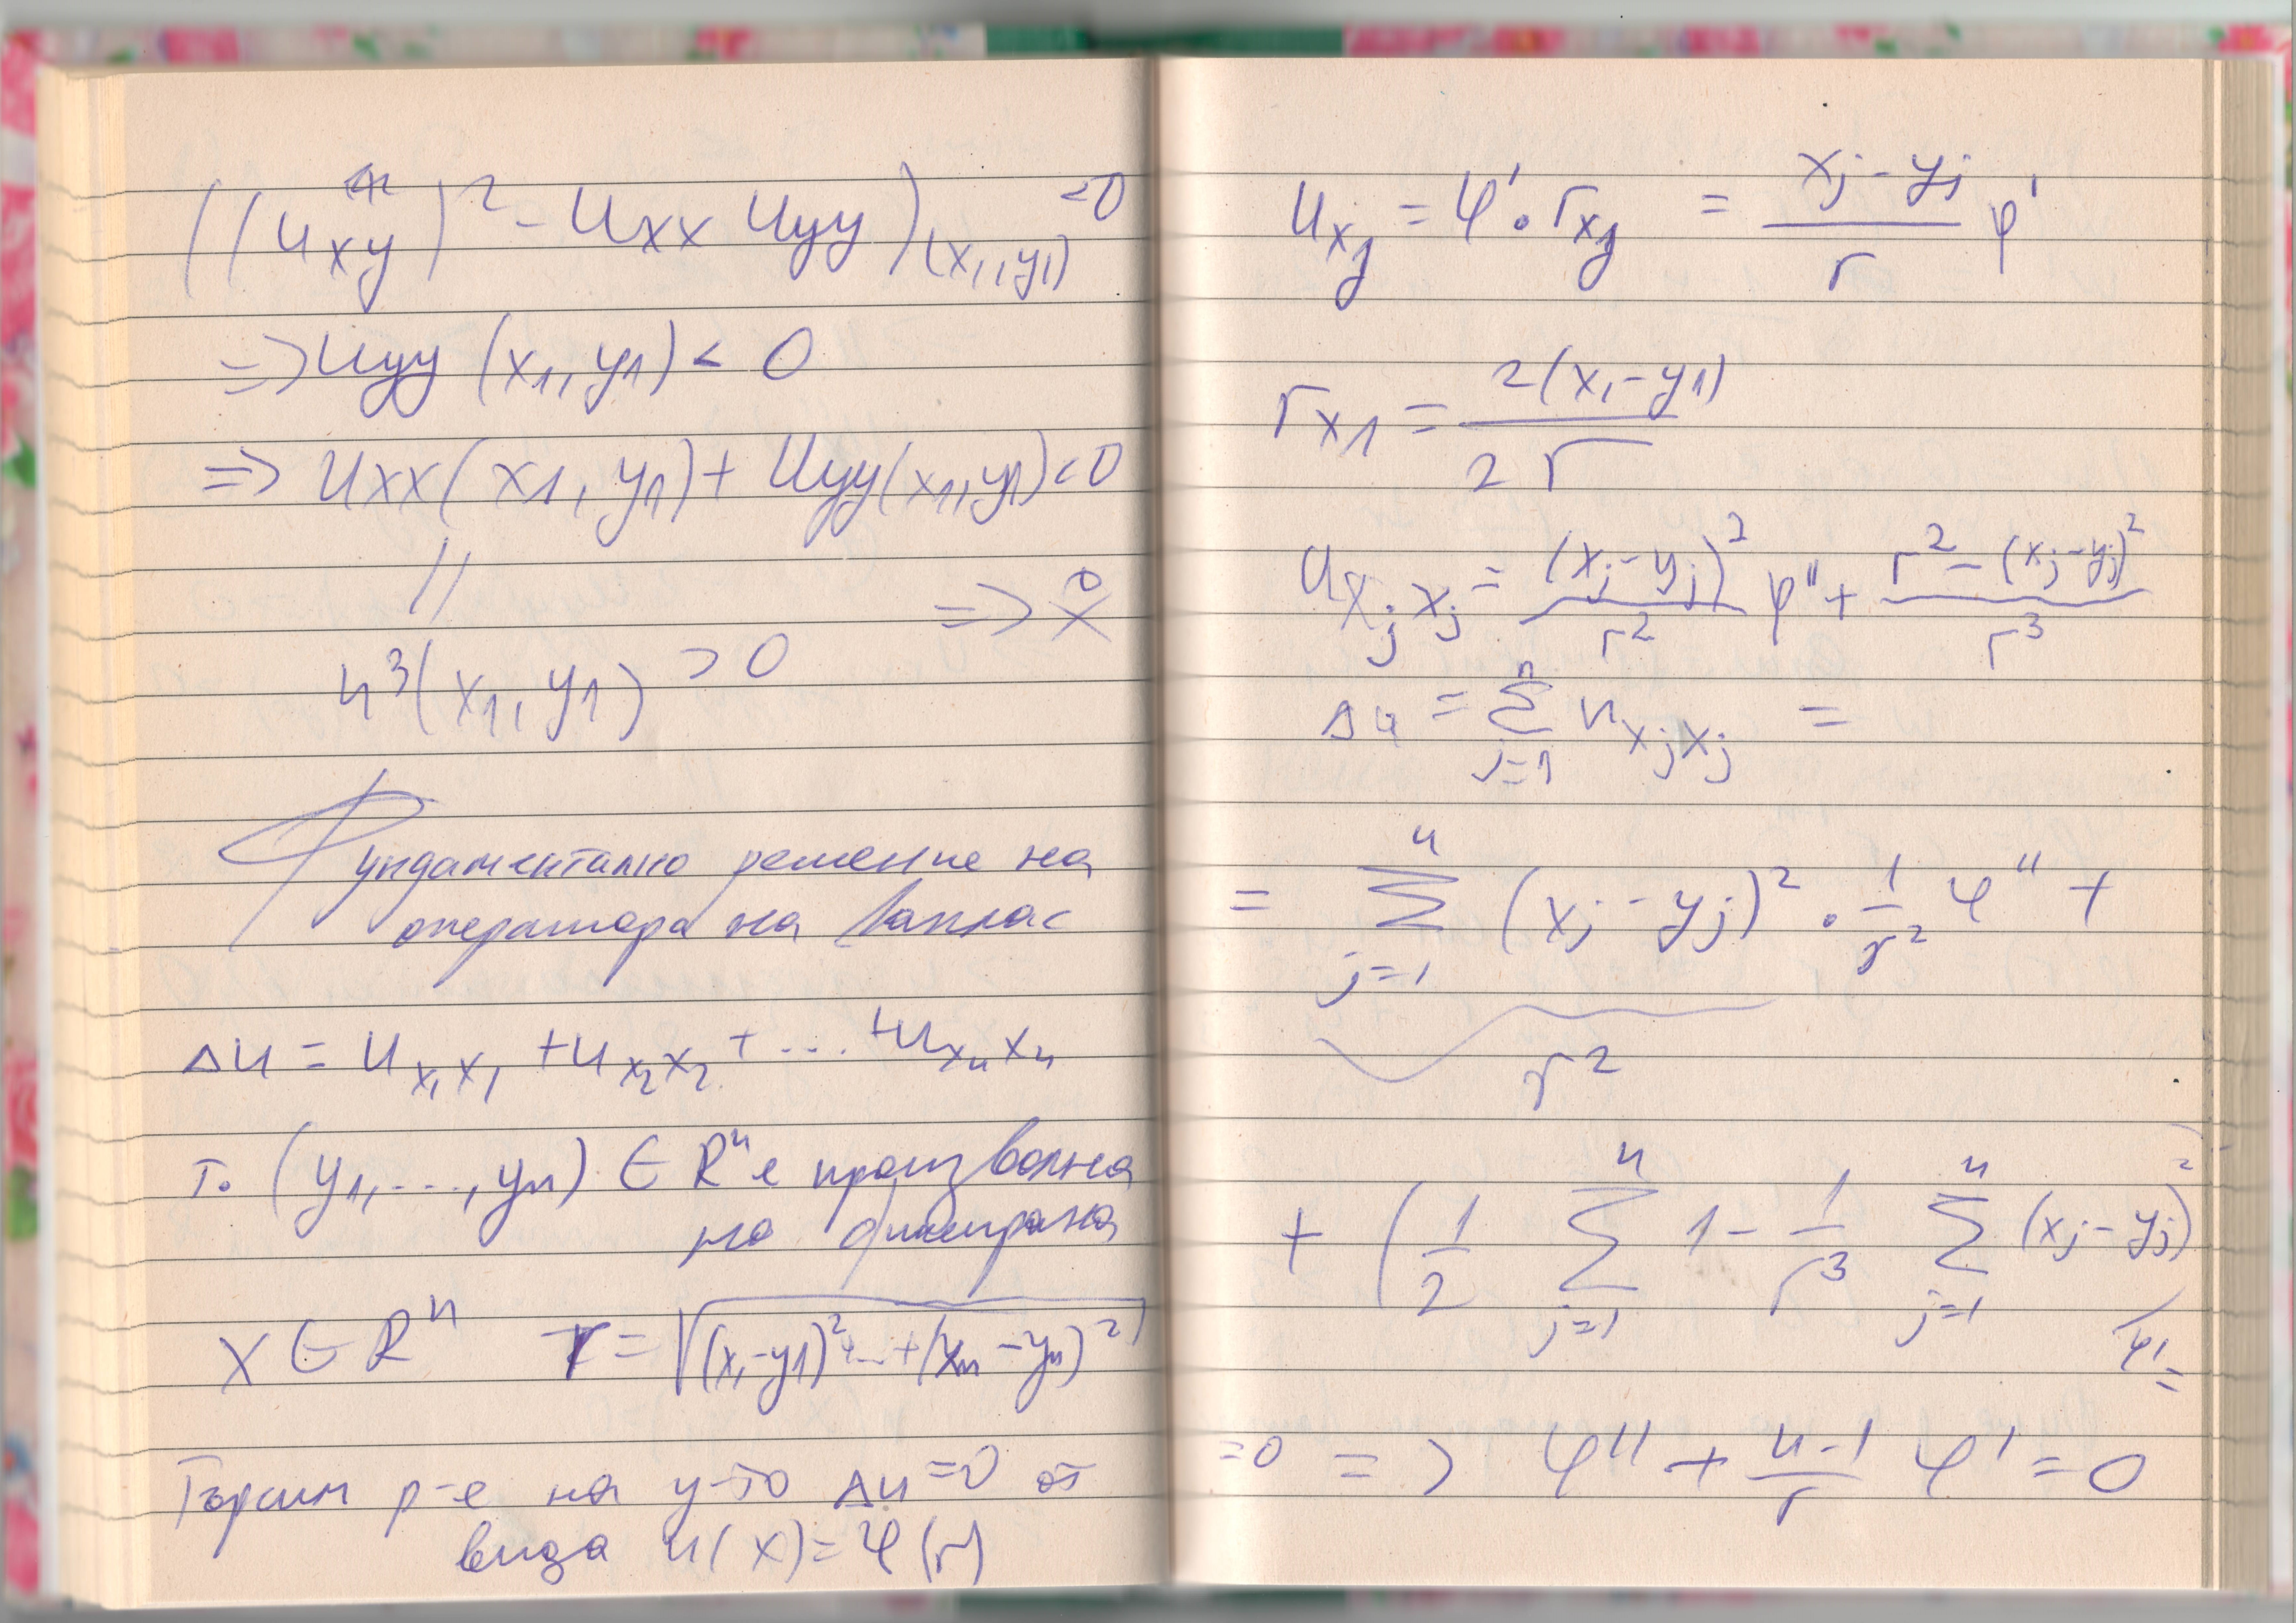 ((u_xy)² - u_xx u_yy)_(x₁, y₁) <0
=> u_yy (x₁, y₁) < 0
=> u_xx (x₁, y₁) + u_yy (x₁, y₁) < 0
//
u³(x₁, y₁) > 0 =>
Фундаментално решение на
оператора на Лаплас
Δu = u_x₁x₁ + u_x₂x₂ + ... + u_xₙxₙ
т. (y₁, ..., yₙ) ∈ Rⁿ е произволна
но фиксирана
x ∈ Rⁿ r = √((x₁-y₁)² + ... + (xₙ-yₙ)²)
Търсим р-е на у-то Δu = 0 от
вида u(x) = φ(r)
u_xⱼ = φ' . r_xⱼ = (xⱼ - yⱼ)/r φ'
r_x₁ = 2(x₁ - y₁)/2r
u_xⱼxⱼ = (xⱼ - yⱼ)²/r² φ'' + (r² - (xⱼ - yⱼ)²)/r³
Δu = Σ_{j=1}^n u_xⱼxⱼ =
= Σ_{j=1}^n (xⱼ - yⱼ)² . 1/r² φ'' +
r²
+ (1/2 Σ_{j=1}^n 1 - 1/r³ Σ_{j=1}^n (xⱼ - yⱼ)²)
φ' =
=0 => φ'' + (n-1)/r φ' = 0